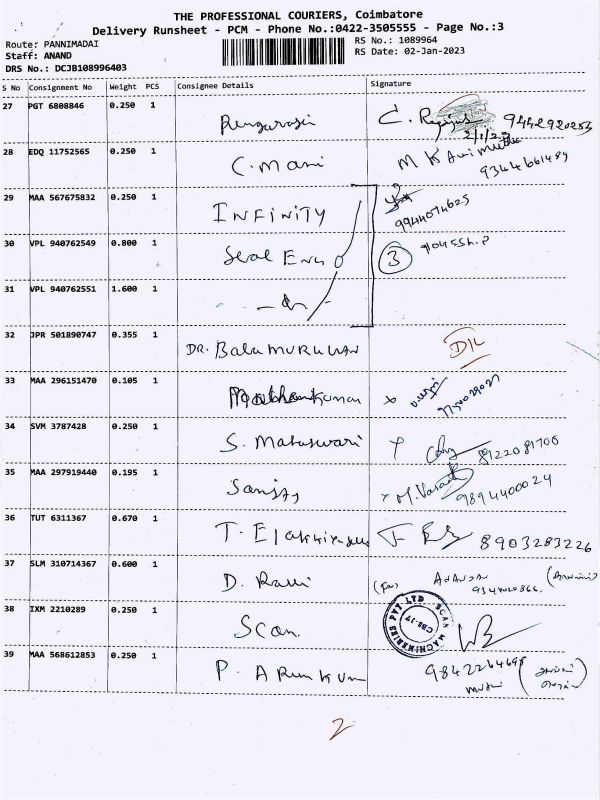 THE PROFESSIONAL COURIERS, Coimbatore
Delivery Runsheet - PCM - Phone No.:0422-3505555 - Page No.:3
Route: PANNIMADAI RS No.: 1089964
Staff: ANAND RS Date: 02-Jan-2023
DRS No.: DCJB108996403
S No Consignment No Weight PCS Consignee Details Signature
27 PGT 6808846 0.250 1 Rengarasi C.
2/1/23
28 EDQ 11752565 0.250 1 C. Mani M K
9344661489
29 MAA 567675832 0.250 1 INFINITY
9944074625
30 VPL 940762549 0.800 1 Seal Eng 3
31 VPL 940762551 1.600 1
32 JPR 501890747 0.355 1 DR. BalaMURUGAN D/L
33 MAA 296151470 0.105 1 x
34 SVM 3787428 0.250 1 S. Mataswari 8122081706
35 MAA 297919440 0.195 1 x M. 9894400024
36 TUT 6311367 0.670 1 T. 8903283226
37 SLM 310714367 0.600 1 D. Ravi (For) ANANDAN
38 IXM 2210289 0.250 1 Scan
SCAN MACHINERIES PVT LTD
CBE-17
39 MAA 568612853 0.250 1 P. ARUNKUM 9842264698
2